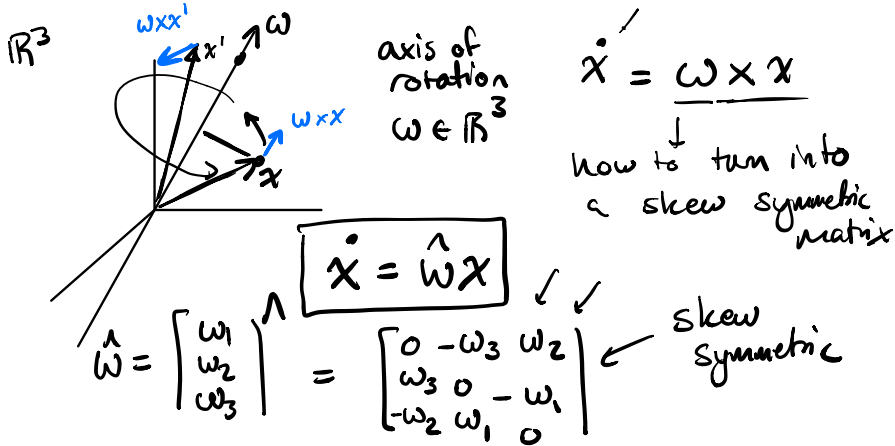 ℝ³
ω×x'
x'
ω
ω×x
x
axis of
rotation
ω ∈ ℝ³
ẋ = ω × x
how to turn into
a skew symmetric
matrix
ẋ = ω̂x
ω̂ = [ω₁ ω₂ ω₃]^ = [0 -ω₃ ω₂
ω₃ 0 -ω₁
-ω₂ ω₁ 0]
skew
symmetric